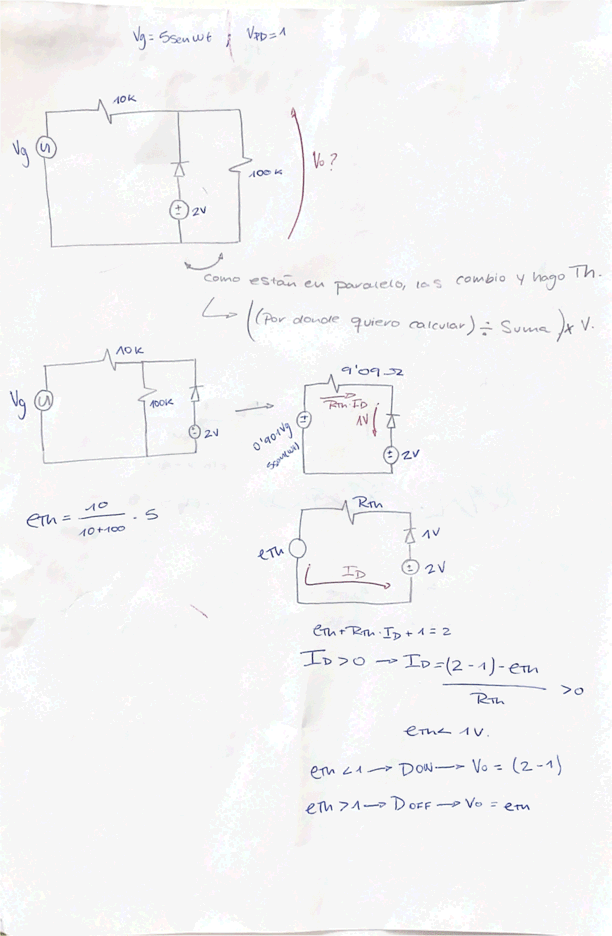 Vg = 5senωt ; VPD = 1
10K
Vg
100K
2V
Vo?
como están en paralelo, las cambio y hago Th.
((Por donde quiero calcular) ÷ Suma) x V.
10K
Vg
100K
2V
9'09 Ω
RTh ID
1V
0'909Vg
2V
eTh = 10 / 10+100 · 5
RTh
eTh
1V
2V
ID
eTh + RTh · ID + 1 = 2
ID > 0 → ID = (2-1) - eTh / RTh > 0
eTh < 1V.
eTh < 1 → DON → Vo = (2-1)
eTh > 1 → DOFF → Vo = eTh